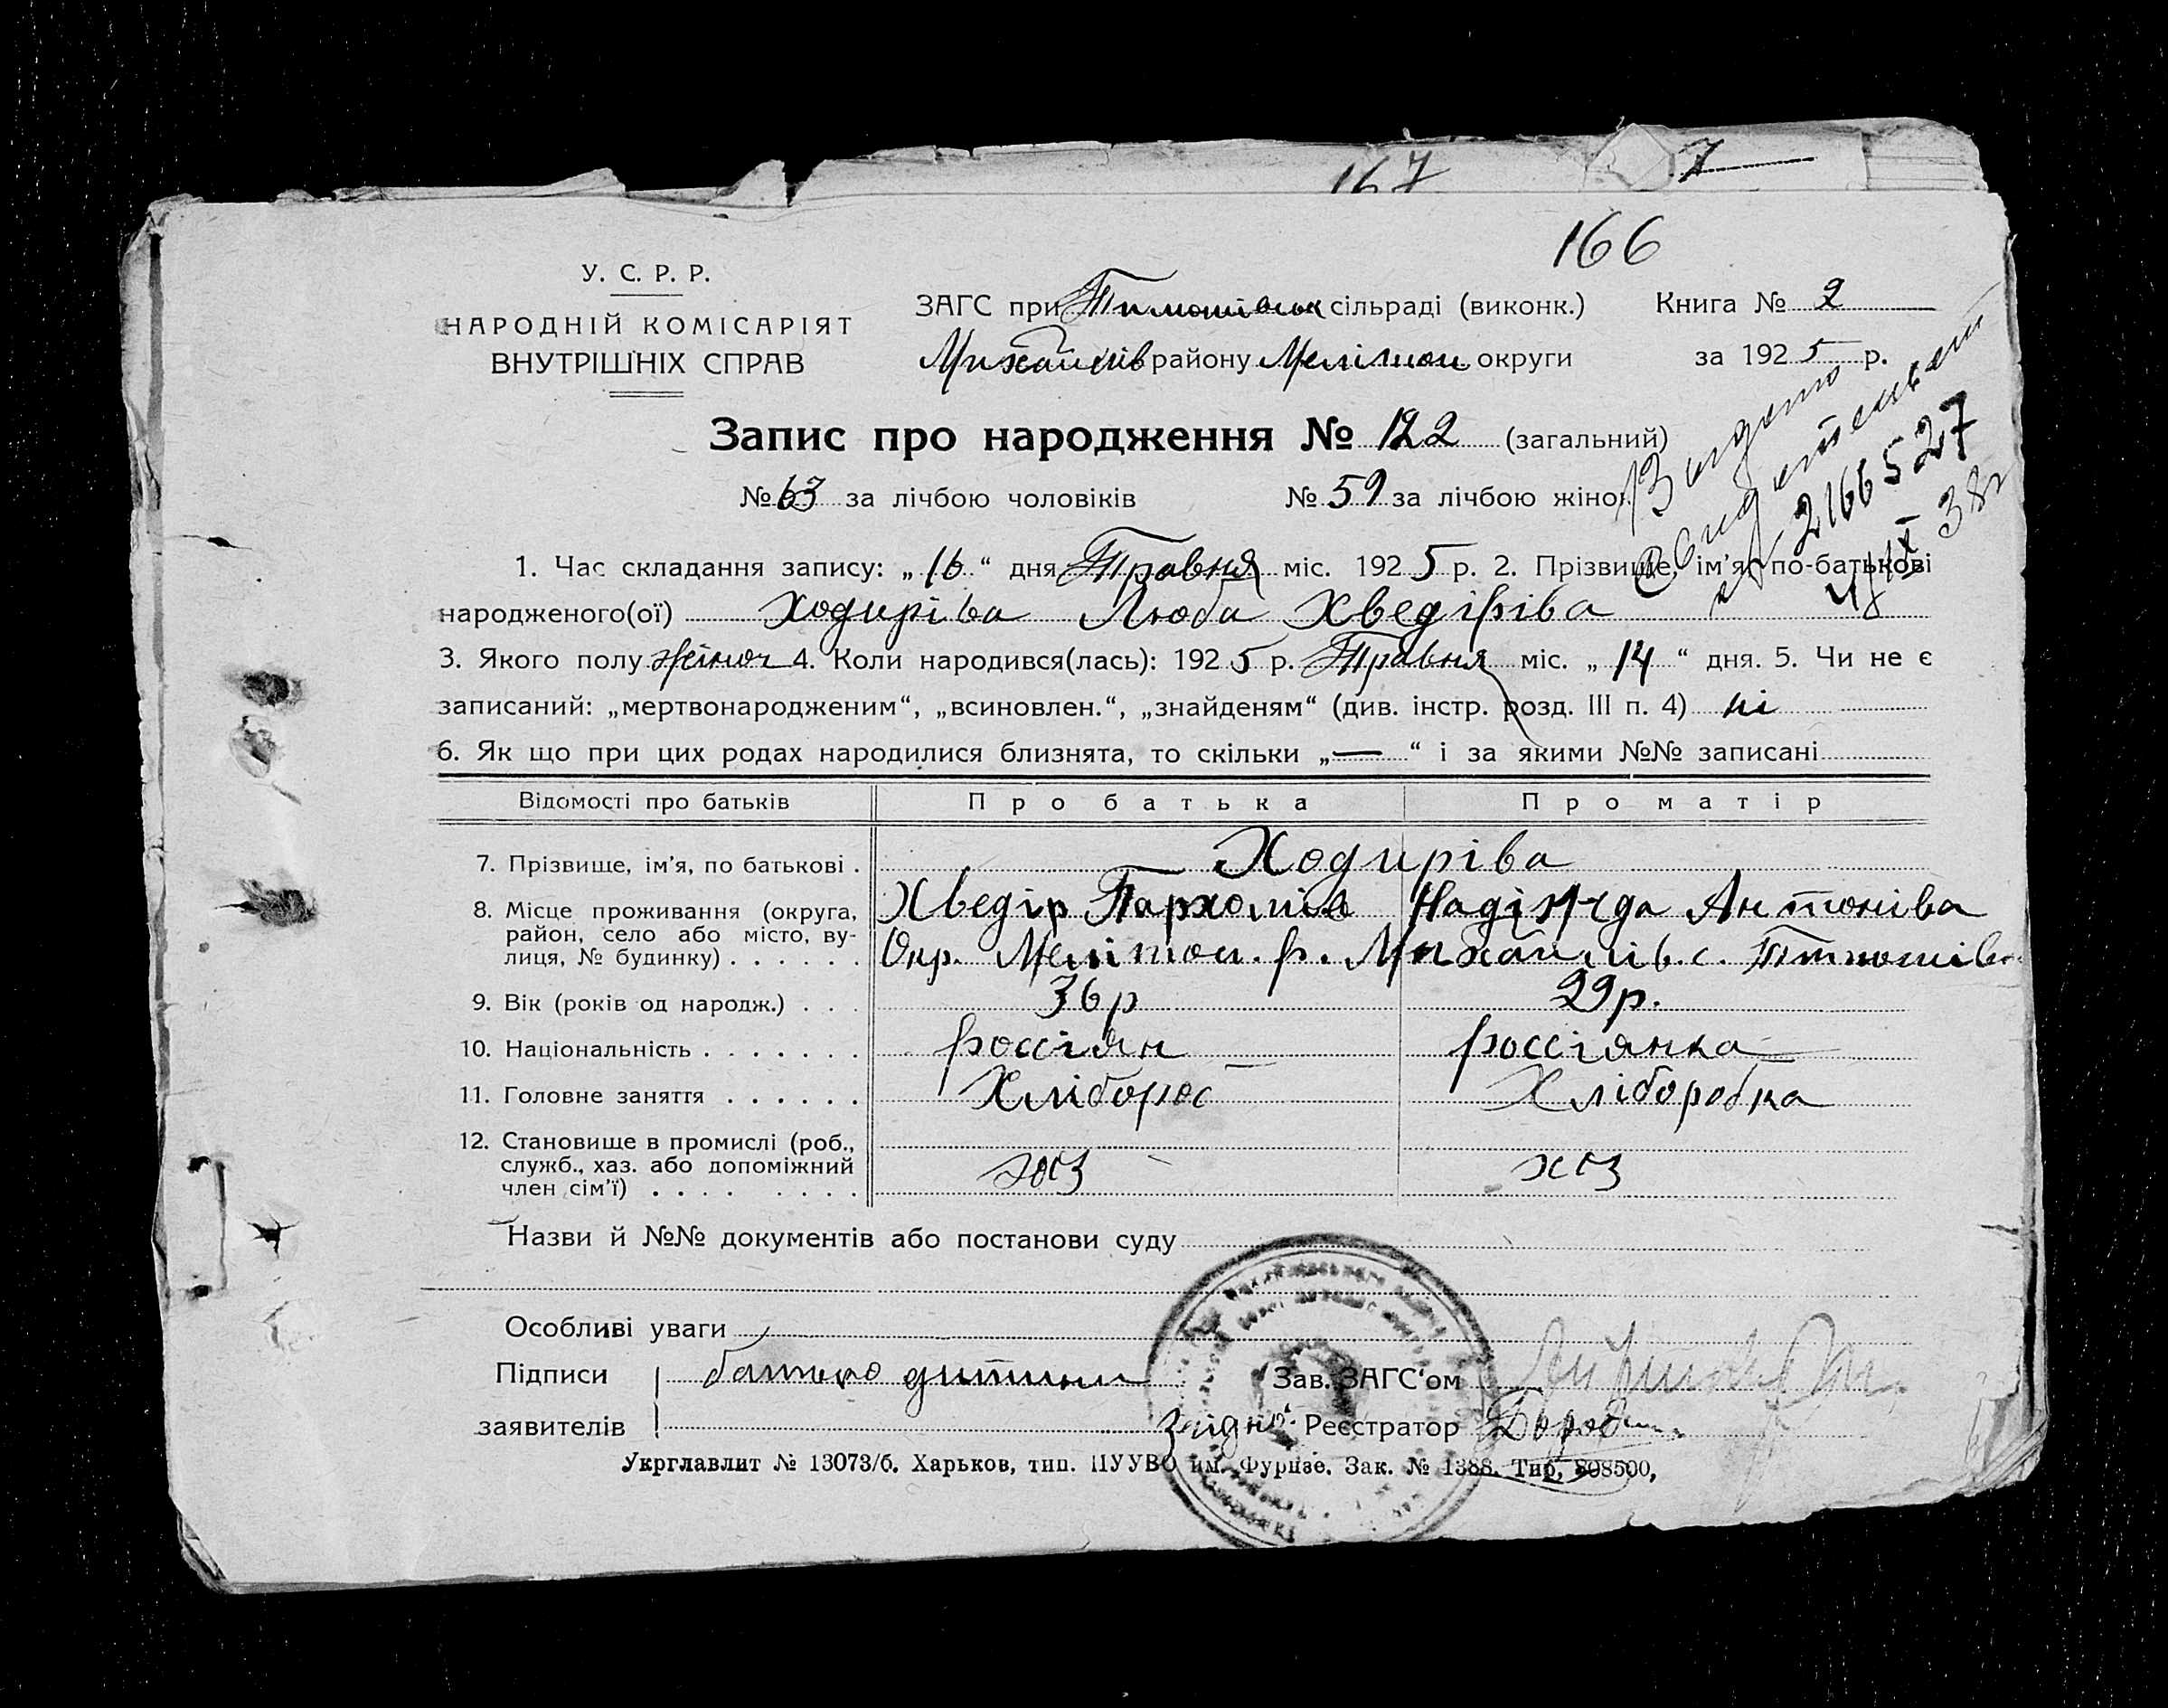 167 7
166
У. С. Р. Р.
НАРОДНІЙ КОМІСАРІЯТ
ВНУТРІШНІХ СПРАВ
ЗАГС при Тимошівськ сільраді (виконк.) Книга № 2
Михайлів району Мелітоп округи за 1925 р.
Запис про народження № 122 (загальний)
№ 63 за лічбою чоловіків № 59 за лічбою жінок
Видано
№ 2166527
1. Час складання запису: „16“ дня Травня міс. 1925 р. 2. Прізвище, ім'я, по-батькові
народженого(ої) Ходиріва Люба Хведіріва
3. Якого полу жіноч 4. Коли народився(лась): 1925 р. Травня міс. „14“ дня. 5. Чи не є
записаний: „мертвонародженим“, „всиновлен.“, „знайденям“ (див. інстр. розд. III п. 4) ні
6. Як що при цих родах народилися близнята, то скільки „—“ і за якими №№ записані
Відомості про батьків Про батька Про матір
7. Прізвище, ім'я, по батькові . Ходиріва
Хведір Пархомів Надіжда Антоніва
8. Місце проживання (округа,
район, село або місто, ву-
лиця, № будинку) . . . . . . Окр. Мелітоп. р. Михайлів. с. Тимошів
9. Вік (років од народж.) . . . 36р 29р.
10. Національність . . . . . . . россіян россіянка
11. Головне заняття . . . . . . Хлібороб Хліборобка
12. Становище в промислі (роб.,
служб., хаз. або допоміжний
член сім'ї) . . . . . . . . хаз хаз
Назви й №№ документів або постанови суду
Особливі уваги
Підписи батько дитини Зав. ЗАГС'ом
заявителів Реєстратор
Укрглавлит № 13073/б. Харьков, тип. ПУУВО им. Фурнзе. Зак. № 1388. Тир. 808500,